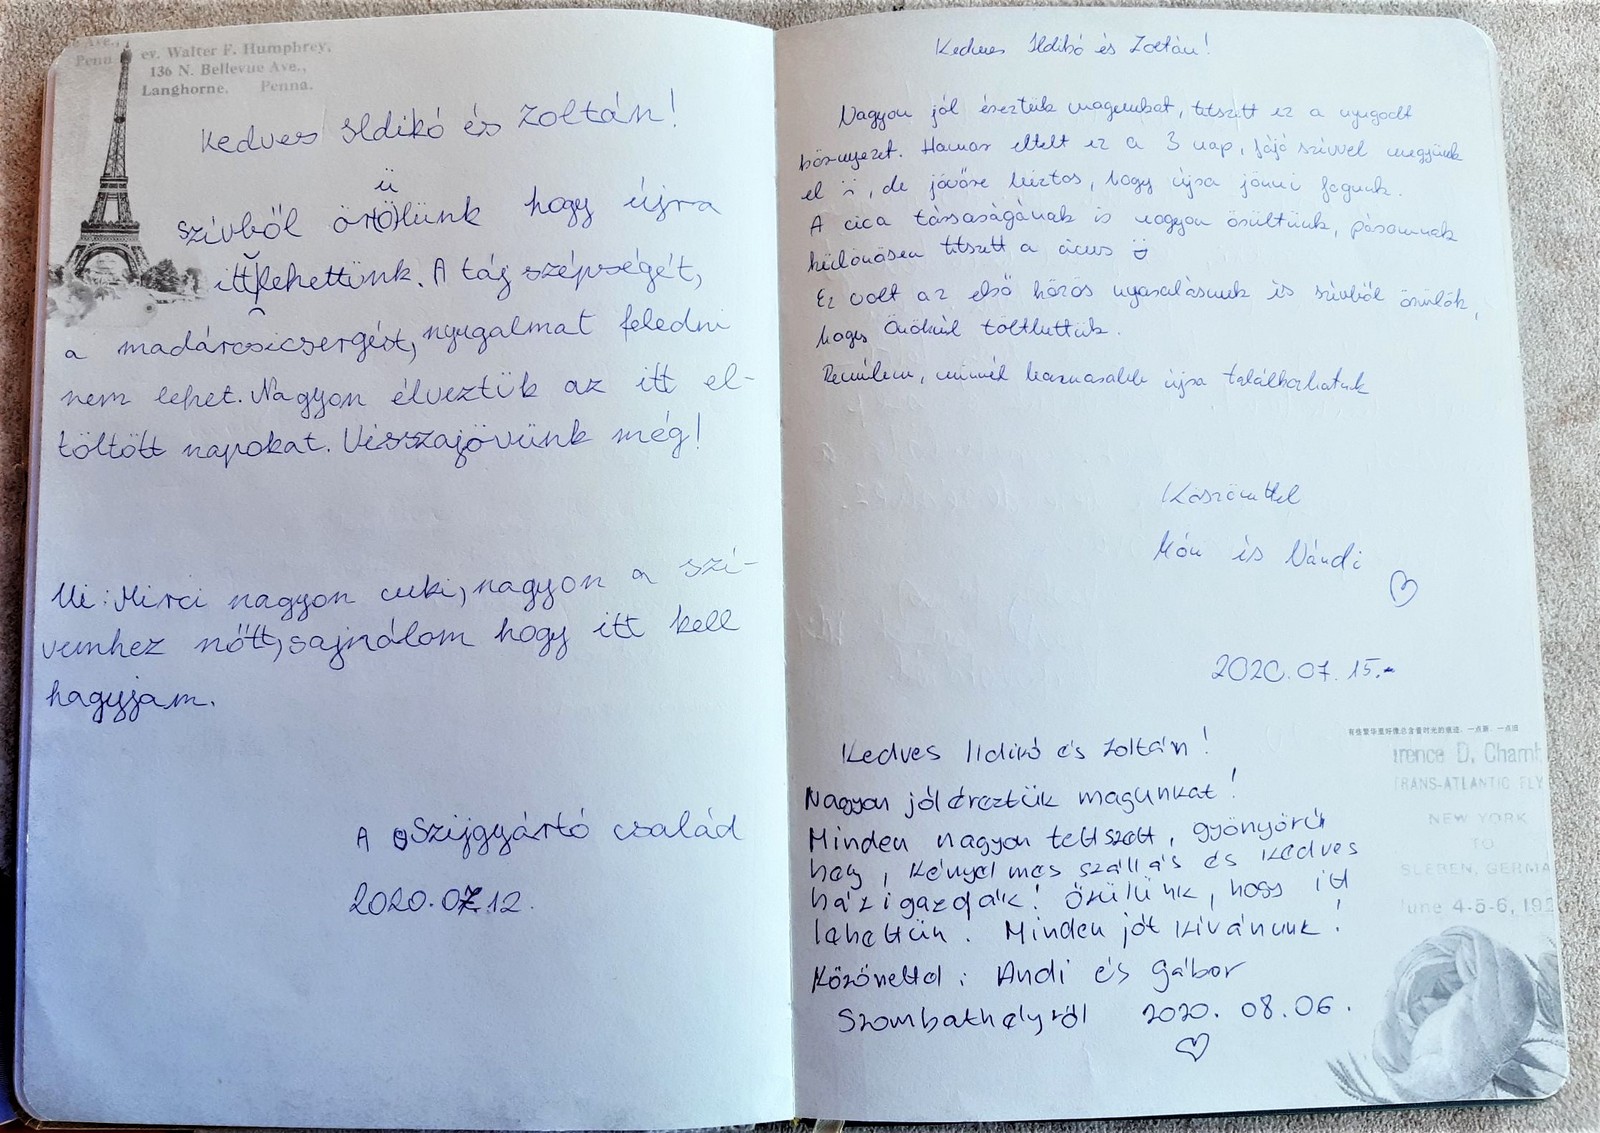 ev. Walter F. Humphrey,
136 N. Bellevue Ave.,
Langhorne, Penna.
Kedves Ildikó és Zoltán!
ü
szívből örölünk hogy újra
itt lehettünk. A táj szépségét,
a madárcsicsergést, nyugalmat feledni
nem lehet. Nagyon élveztük az itt el-
töltött napokat. Visszajövünk még!
Ui: Mirci nagyon cuki, nagyon a szí-
vemhez nőtt, sajnálom hogy itt kell
hagyjam.
A Szíjgyártó család
2020.07.12.
Kedves Ildikó és Zoltán!
Nagyon jól éreztük magunkat, tetszett ez a nyugodt
környezet. Hamar eltelt ez a 3 nap, fájó szívvel megyünk
el, de jövőre biztos, hogy újra jönni fogunk.
A cica társaságának is nagyon örültünk, páromnak
különösen tetszett a cicus
Ez volt az első közös nyaralásunk és szívből örülök,
hogy Önöknél tölthettük.
Remélem, minél hamarabb újra találkozhatunk
Köszönettel
és Nándi
2020.07.15.-
有些繁华是好像总含着时光的痕迹，一点新，一点旧
Kedves Ildikó és Zoltán!
Nagyon jól éreztük magunkat!
Minden nagyon tettszett, gyönyörű
hely, kényelmes szállás és kedves
házigazdák! Örülünk, hogy itt
lehettün. Minden jót kívánunk!
Közönettel: Andi és Gábor
Szombathelyről 2020. 08. 06.
rence D. Chamb
TRANS-ATLANTIC FLY
NEW YORK
TO
SLEBEN, GERMA
June 4-5-6, 192